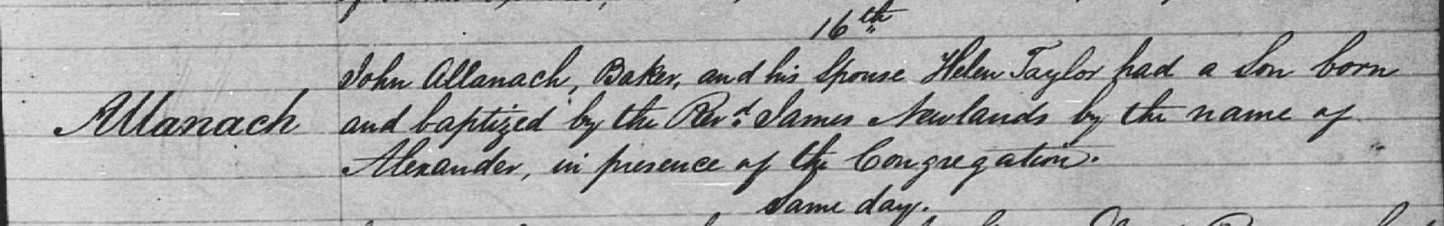 16th
John Allanach, Baker, and his Spouse Helen Taylor had a Son born
Allanach and baptized by the Revd. James Newlands by the name of
Alexander, in presence of the Congregation.
Same day.